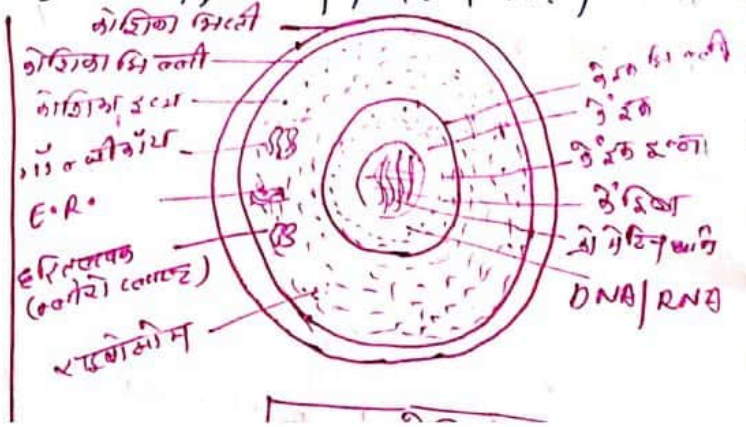 कोशिका भित्ती
कोशिका झिल्ली
कोशिका द्रव्य
गॉल्जीकॉय
E.R.
हरितलवक
(क्लोरोप्लास्ट)
राइबोसोम
केंद्रक झिल्ली
केंद्रक
केंद्रक द्रव्य
केंद्रिका
क्रोमेटिन धागे
DNA/RNA